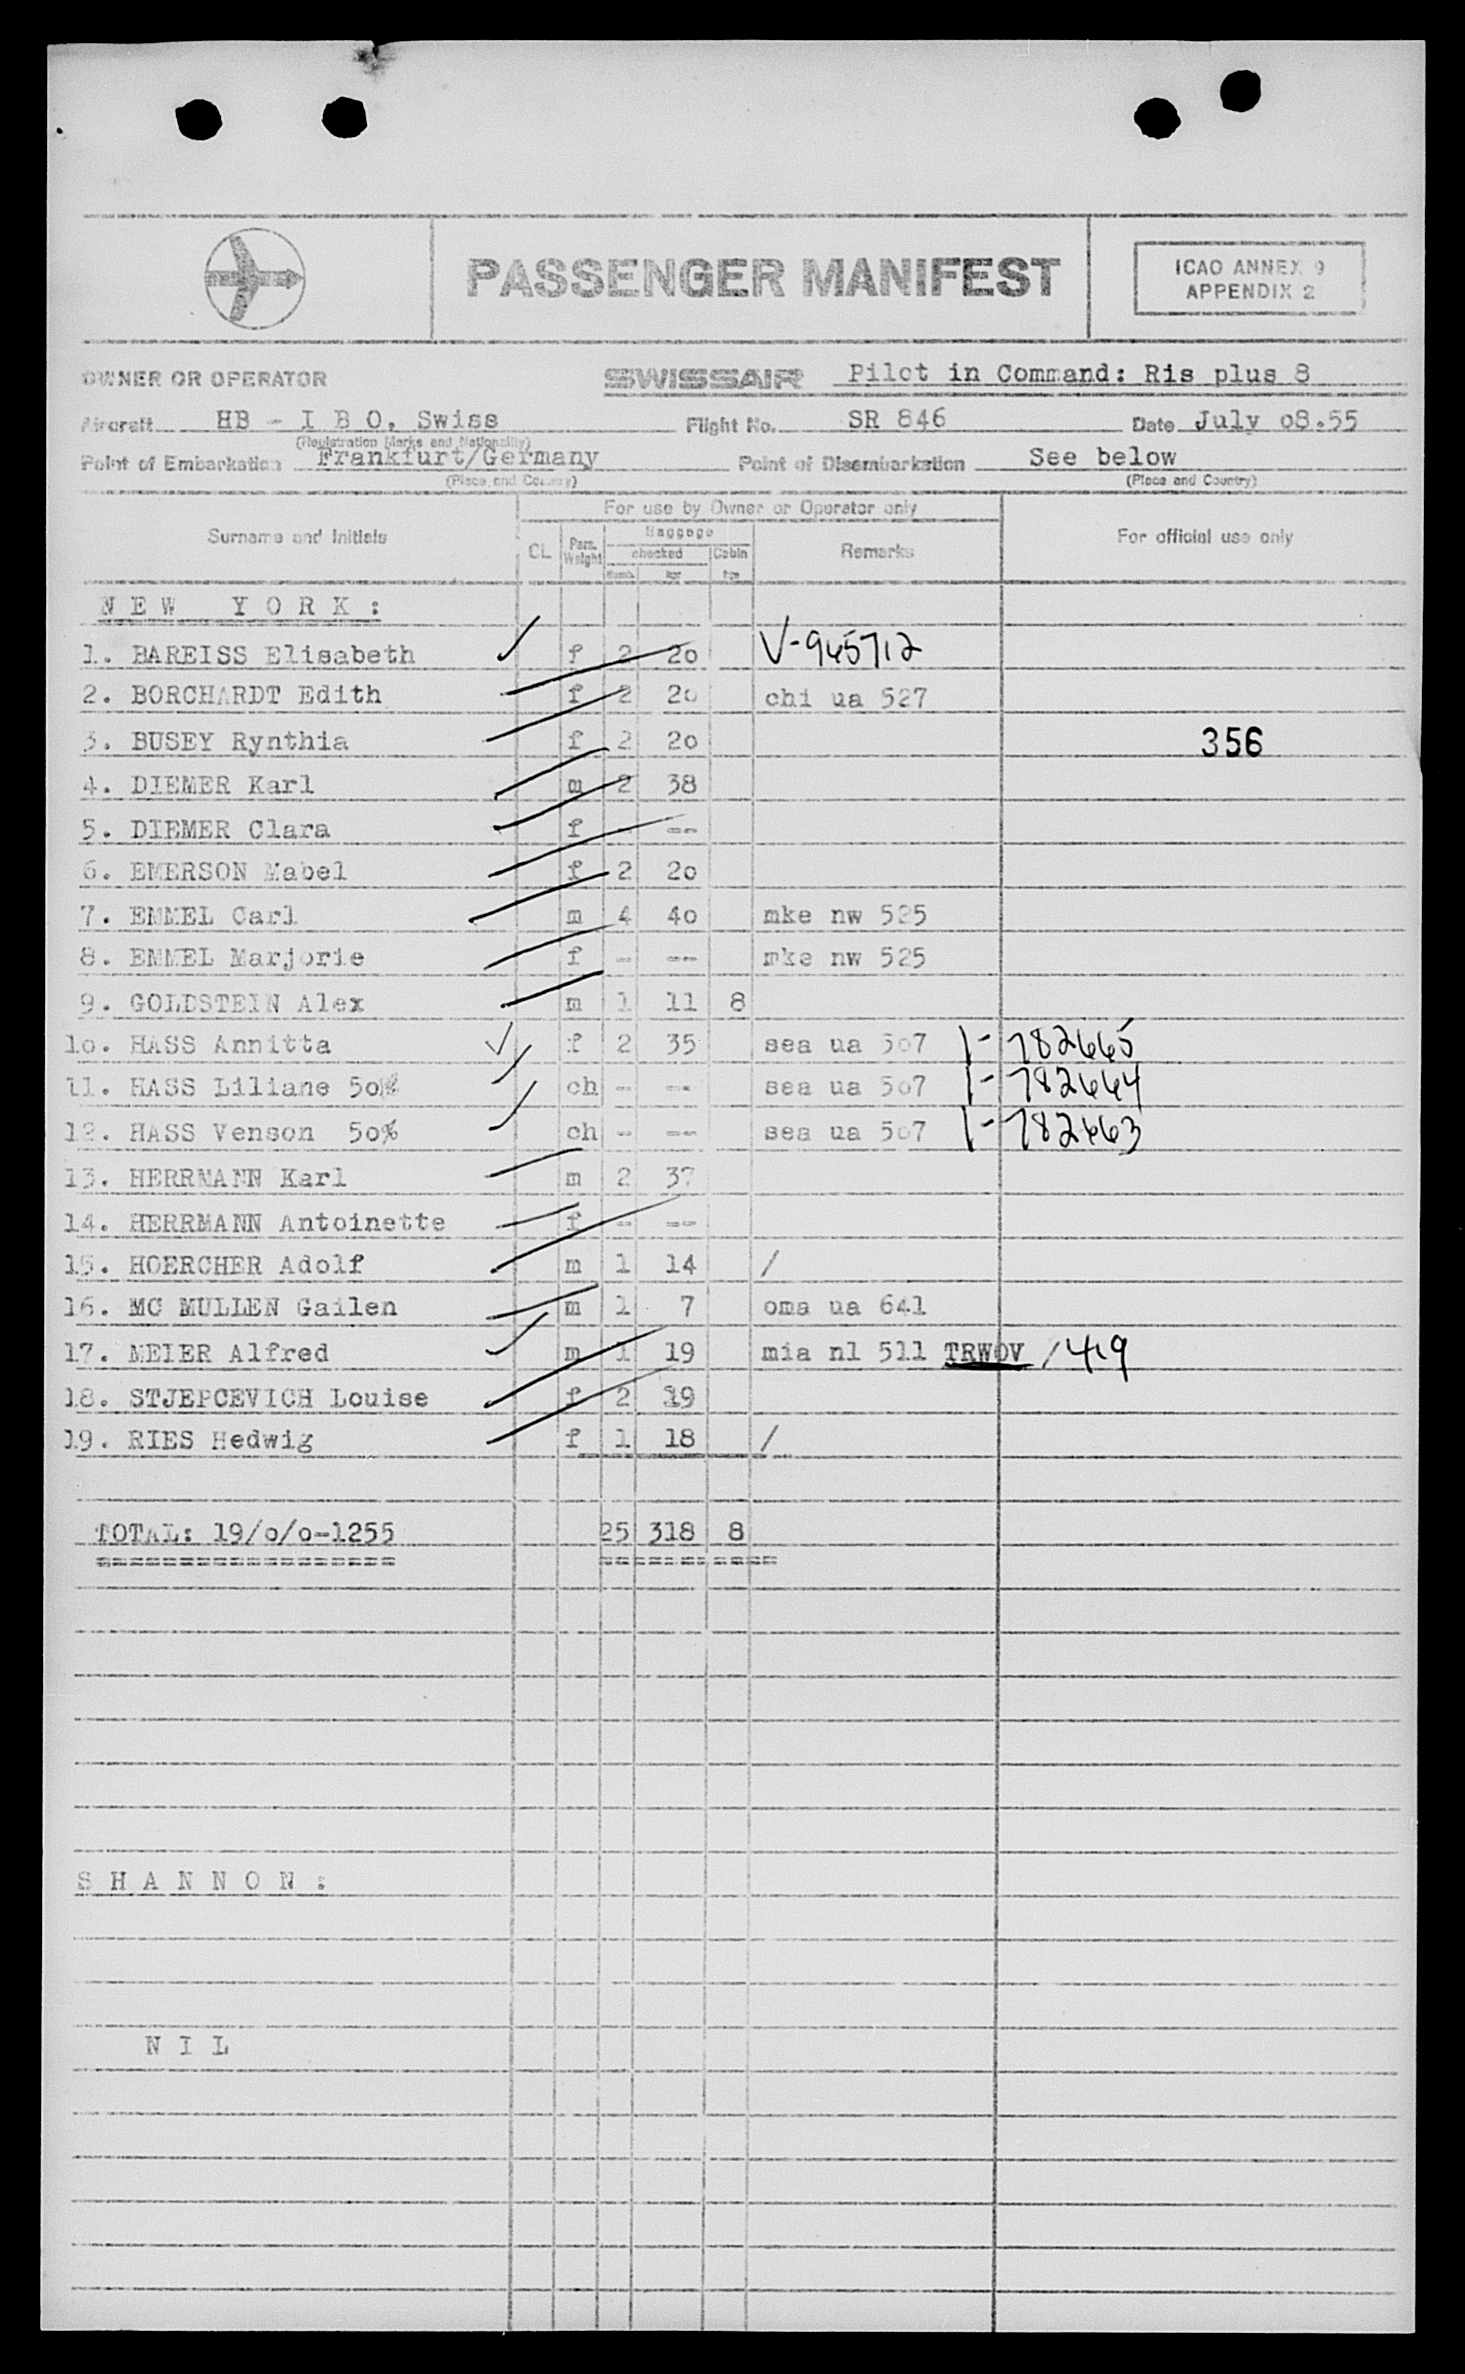 PASSENGER MANIFEST
ICAO ANNEX 9
APPENDIX 2
OWNER OR OPERATOR SWISSAIR Pilot in Command: Ris plus 8
Aircraft HB - I B O, Swiss Flight No. SR 846 Date July o8.55
(Registration Marks and Nationality)
Point of Embarkation Frankfurt/Germany Point of Disembarkation See below
(Place and Country) (Place and Country)
For use by Owner or Operator only
Surname and Initials CL Pers. Weight Baggage checked Cabin Remarks For official use only
N E W Y O R K :
1. BAREISS Elisabeth f 2 2o V-945712
2. BORCHARDT Edith f 2 2o chi ua 527
3. BUSEY Rynthia f 2 2o 356
4. DIEMER Karl m 2 38
5. DIEMER Clara f - --
6. EMERSON Mabel f 2 2o
7. EMMEL Carl m 4 4o mke nw 525
8. EMMEL Marjorie f - -- mke nw 525
9. GOLDSTEIN Alex m 1 11 8
1o. HASS Annitta f 2 35 sea ua 5o7 1-782665
11. HASS Liliane 5o% ch - -- sea ua 5o7 1-782664
12. HASS Venson 5o% ch - -- sea ua 5o7 1-782663
13. HERRMANN Karl m 2 37
14. HERRMANN Antoinette f - --
15. HOERCHER Adolf m 1 14 /
16. MC MULLEN Gailen m 1 7 oma ua 641
17. MEIER Alfred m 1 19 mia nl 511 TRWOV /419
18. STJEPCEVICH Louise f 2 19
19. RIES Hedwig f 1 18 /
TOTAL: 19/o/o-1255 25 318 8
S H A N N O N :
N I L